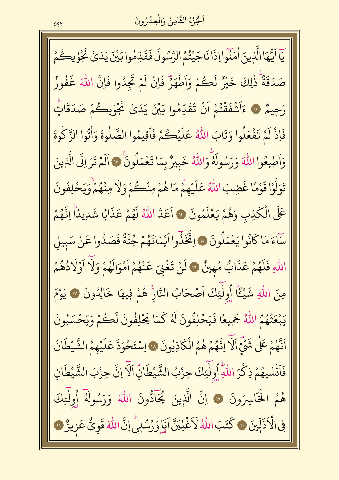 اَلْجُزْءُ الثَّامِنُ وَالْعِشْرُونَ
يَآ اَيُّهَا الَّذِينَ اٰمَنُٓوا اِذَا نَاجَيْتُمُ الرَّسُولَ فَقَدِّمُوا بَيْنَ يَدَيْ نَجْوٰيكُمْ
صَدَقَةً ذٰلِكَ خَيْرٌ لَكُمْ وَاَطْهَرُ فَاِنْ لَمْ تَجِدُوا فَاِنَّ اللّٰهَ غَفُورٌ
رَحِيمٌ ءَاَشْفَقْتُمْ اَنْ تُقَدِّمُوا بَيْنَ يَدَيْ نَجْوٰيكُمْ صَدَقَاتٍ
فَاِذْ لَمْ تَفْعَلُوا وَتَابَ اللّٰهُ عَلَيْكُمْ فَاَقِيمُوا الصَّلٰوةَ وَاٰتُوا الزَّكٰوةَ
وَاَطِيعُوا اللّٰهَ وَرَسُولَهُ وَاللّٰهُ خَبِيرٌ بِمَا تَعْمَلُونَ اَلَمْ تَرَ اِلَى الَّذِينَ
تَوَلَّوْا قَوْمًا غَضِبَ اللّٰهُ عَلَيْهِمْ مَا هُمْ مِنْكُمْ وَلَا مِنْهُمْ وَيَحْلِفُونَ
عَلَى الْكَذِبِ وَهُمْ يَعْلَمُونَ اَعَدَّ اللّٰهُ لَهُمْ عَذَابًا شَدِيدًا اِنَّهُمْ
سَآءَ مَا كَانُوا يَعْمَلُونَ اِتَّخَذُٓوا اَيْمَانَهُمْ جُنَّةً فَصَدُّوا عَنْ سَبِيلِ
اللّٰهِ فَلَهُمْ عَذَابٌ مُهِينٌ لَنْ تُغْنِيَ عَنْهُمْ اَمْوَالُهُمْ وَلَٓا اَوْلَادُهُمْ
مِنَ اللّٰهِ شَيْـًٔا اُولٰٓئِكَ اَصْحَابُ النَّارِ هُمْ فِيهَا خَالِدُونَ يَوْمَ
يَبْعَثُهُمُ اللّٰهُ جَمِيعًا فَيَحْلِفُونَ لَهُ كَمَا يَحْلِفُونَ لَكُمْ وَيَحْسَبُونَ
اَنَّهُمْ عَلٰى شَيْءٍ اَلَٓا اِنَّهُمْ هُمُ الْكَاذِبُونَ اِسْتَحْوَذَ عَلَيْهِمُ الشَّيْطَانُ
فَاَنْسٰيهُمْ ذِكْرَ اللّٰهِ اُولٰٓئِكَ حِزْبُ الشَّيْطَانِ اَلَٓا اِنَّ حِزْبَ الشَّيْطَانِ
هُمُ الْخَاسِرُونَ اِنَّ الَّذِينَ يُحَآدُّونَ اللّٰهَ وَرَسُولَهُ اُولٰٓئِكَ
فِي الْاَذَلِّينَ كَتَبَ اللّٰهُ لَاَغْلِبَنَّ اَنَا وَرُسُلِي اِنَّ اللّٰهَ قَوِيٌّ عَزِيزٌ